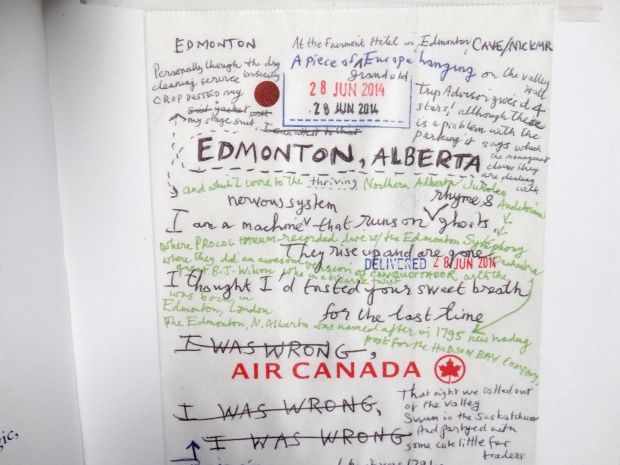 EDMONTON
At the Fairmont Hotel in Edmonton CAVE/NICKMR
A piece of grand old Europe hanging on the valley wall
Personally though the dry
cleaning service basically
CROP DUSTED my
suit jacket
my stage suit, I can attest to that
28 JUN 2014
28 JUN 2014
Trip Advisor gives it 4
stars! although there
is a problem with the
parking it says which
the management
claims they
are dealing
with
EDMONTON, ALBERTA
and which I wore to the thriving Northern Alberta Jubilee Auditorium
nervous system
rhyme &
I am a machine that runs on ghosts
where PROCOL HARUM recorded live w/ the Edmonton Symphony Orchestra
They rise up and are gone
where they did an awesome version of CONQUISTADOR, with the
DELIVERED 28 JUN 2014
great B.J. Wilson who in a bizarre twist
I thought I'd tasted your sweet breath
was born in
Edmonton, London
for the last time
The Edmonton, N. Alberta was named after in 1795 new trading
post for the HUDSON BAY Company,
I WAS WRONG,
AIR CANADA
I WAS WRONG,
I WAS WRONG
That night we rolled out
of the valley
Swam in the Saskatchewan
And partyed with
some cute little fur
traders
gic,